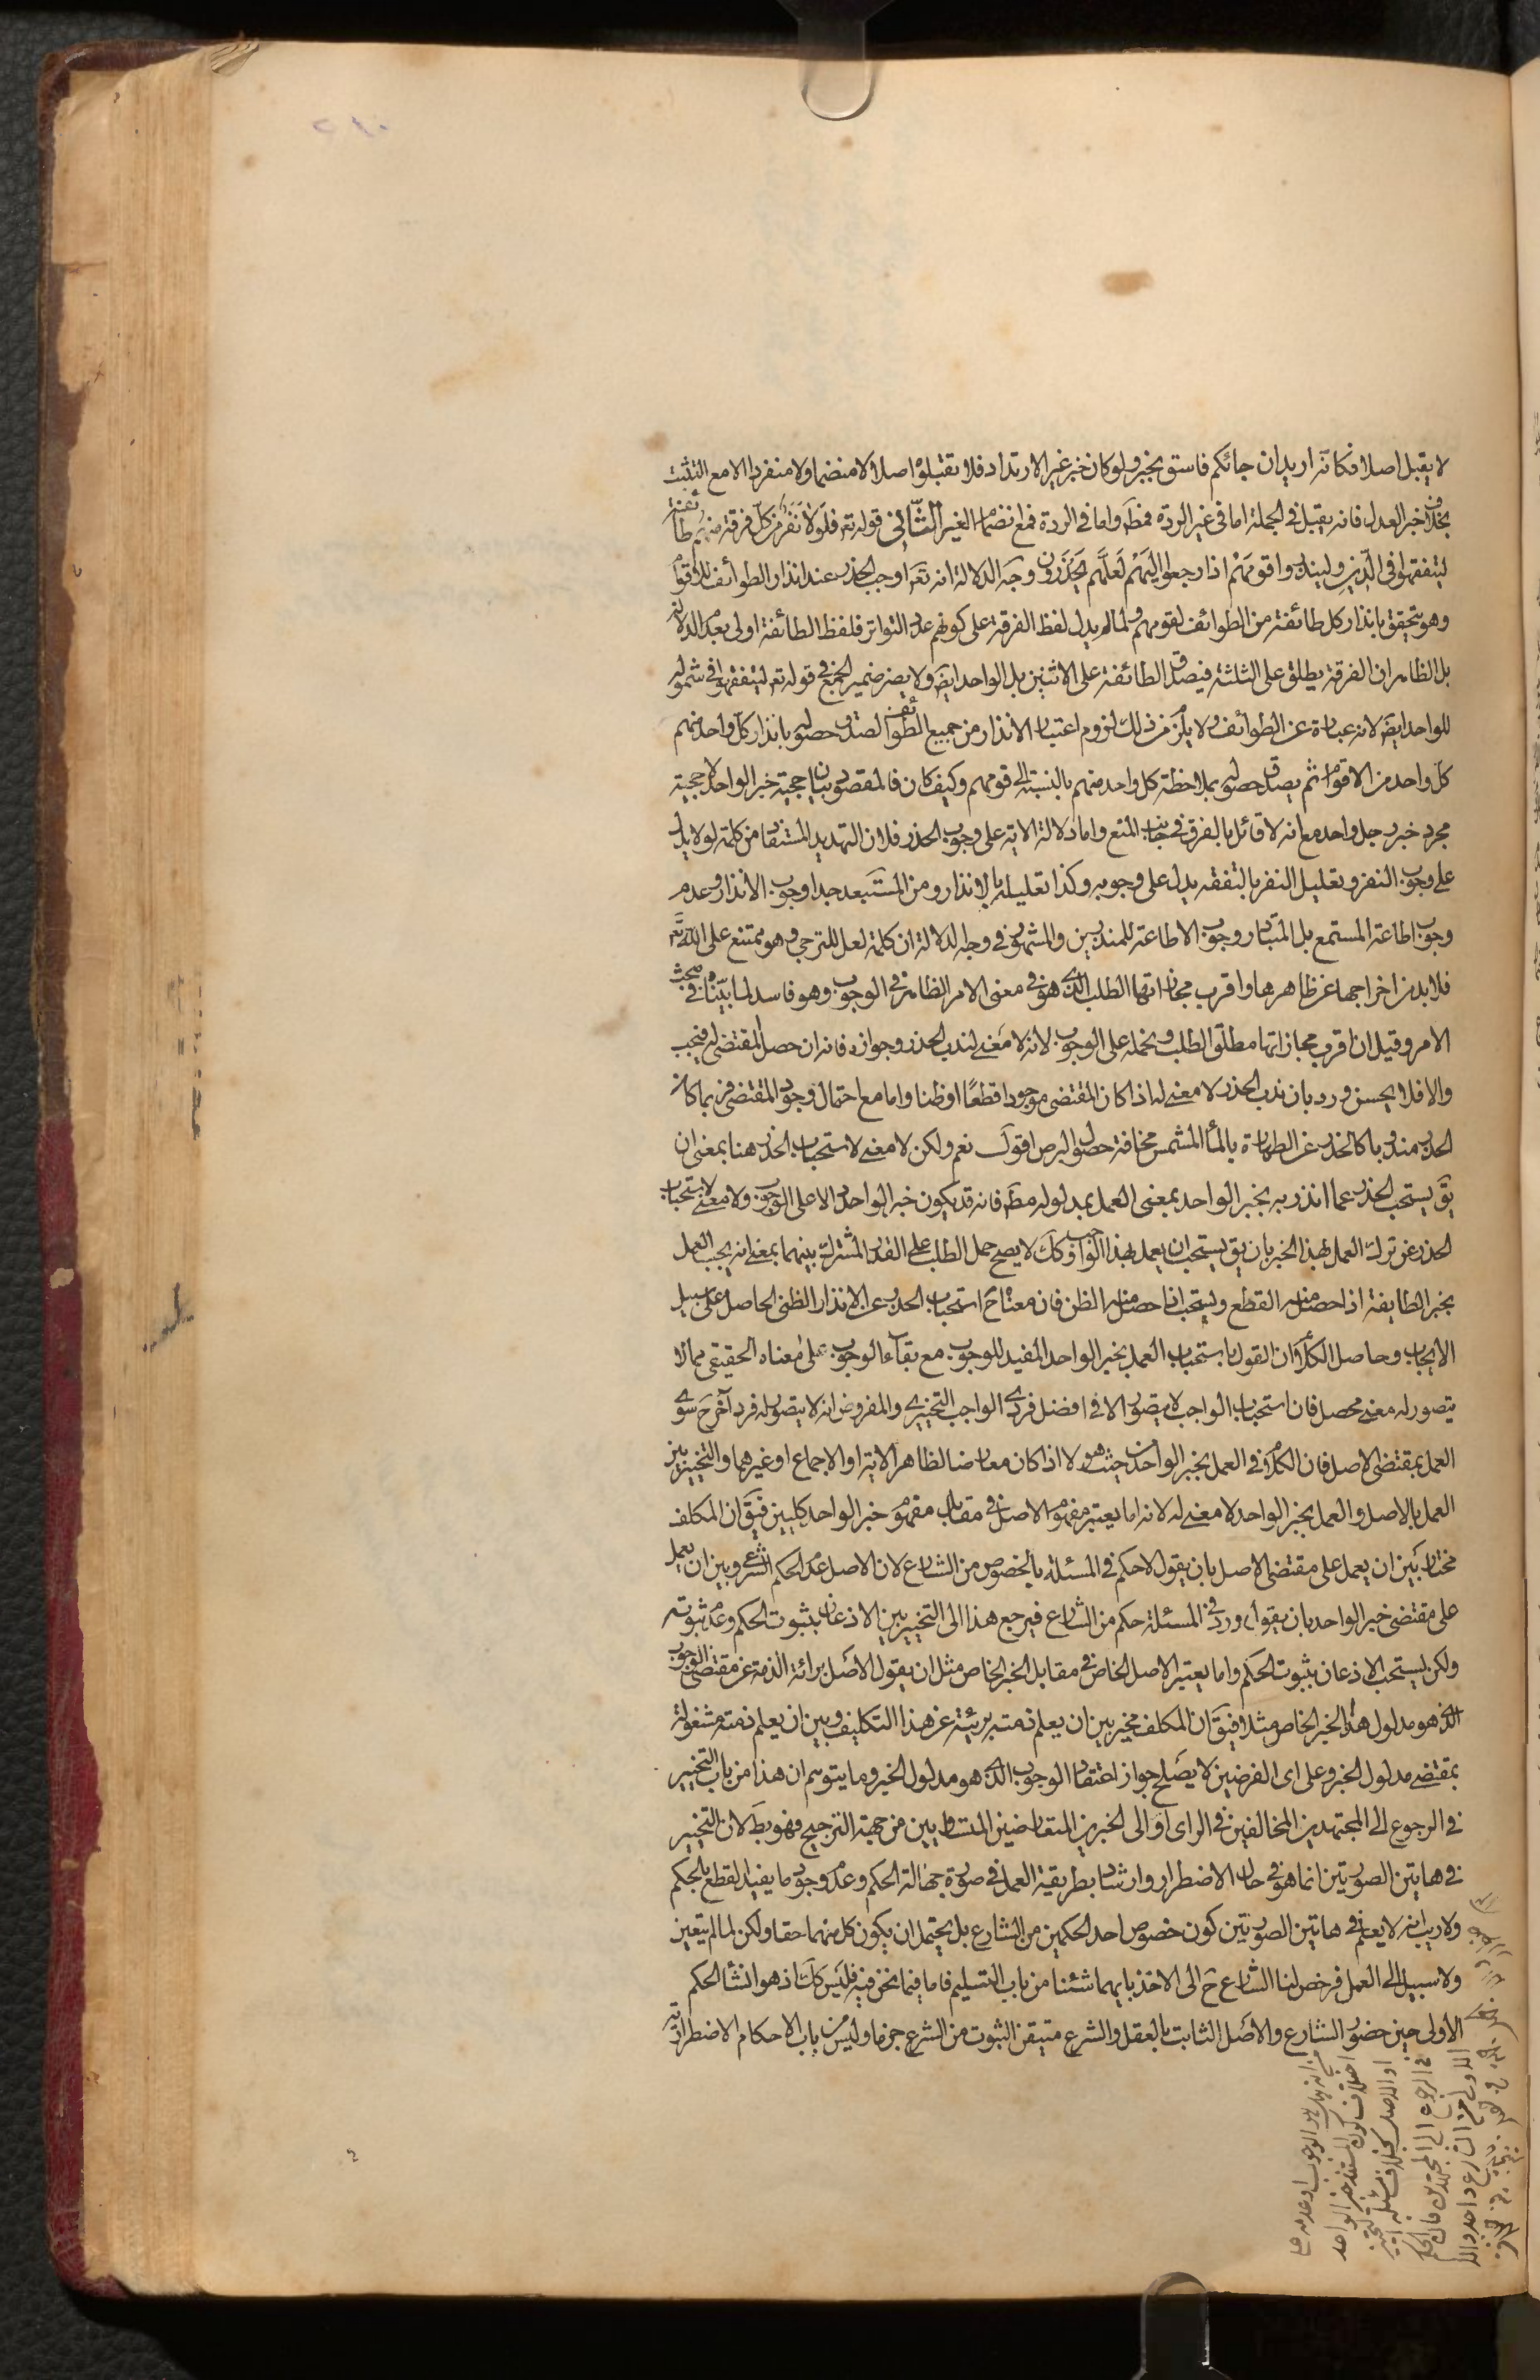 ٢١٠
لا يقبل اصلا فكانّه اريد ان جائكم فاسق بخبر ولو كان خبر غير الارتداد فلا تقبلوْا اصلا لا منضما ولا منفردا الا مع التثبت
بخلاف خبر العدل فانه يقبل فى الجملة اما فى غير الردة فمط واما فى الردة فمع انضمام الغير الثّانى قوله تع فلَولا نَفَر من كلّ فرقة منهم طائفة
ليتفقهوا فى الدّينِ ولينذروا قومَهمْ اذا رجعوا اليَهمْ لَعلّهم يَحذَرون وجه الدلالة انه تعَ اوجب الحذر عند انذار الطوائف للاقوام
وهو يتحقق بانذار كل طائفة من الطوائف لقومهم ولما لم يدل لفظ الفرقة على كونهم عدد التواتر فلفظ الطائفة اولى بعدم الدلالة
بل الظاهر ان الفرقة يطلق على الثلثة فيصدق الطائفة على الاثنين بل الواحد ايضَ ولا يضر ضمير الجمع فى قوله تع ليتفقهوا فى شموله
للواحد ايضَ لانه عبارة عن الطوائف ولا يلزم من ذلك لزوم اعتبار الانذار من جميع الطوائف لصدق حصوله بانذار كل واحد منهم
كلّ واحد من الاقوام ثم يصدق حصوله بملاحظة كل واحد منهم بالنسبة الى قومهم وكيف كان فالمقصود بيان حجية خبر الواحد لا حجية
مجرد خبر رجل واحد مع انه لا قائل بالفرق فى جانب المنع واما دلالة الاية على وجوب الحذر فلان التهديد المستفاد من كلمة لولا يدل
على وجوب النفر وتعليل النفر بالتفقه يدل على وجوبه وكذا تعليله بالانذار ومن المستَبعد جدا وجوب الانذار وعدم
وجوب اطاعة المستمع بل المتبادر وجوب الاطاعة للمنذرين والمشهور فى وجه الدلالة ان كلمة لعل للترجى وهو ممتنع على اللّه تعَ
فلا بد من اخراجها عن ظاهرها واقرب مجازاتها الطلب الذى هو فى معنى الامر الظاهر فى الوجوب وهو فاسد لما بيّناه فى مبحث
الامر وقيل ان اقرب مجازاتها مطلق الطلب ونحمله على الوجوب لانه لا مَعنى لندب الحذر وجوازه فانه ان حصل المقتضى له فيجب
والا فلا يحسن ورد بان ندب الحذر لا معنى له اذا كان المقتضى موجودا قطعًا او ظنا واما مع احتمال وجود المقتضى فربما كان
الحذر مندوبا كالحذر عن الطهارة بالمأ المشمس مخافة حصول البرص اقول نعم ولكن لا معنى لاستحباب الحذر هنا بمعنى ان
يقَ يستحب الحذر عما انذر به بخبر الواحد بمعنى العمل بمدلوله مطَ فانه قد يكون خبر الواحد دالا على الوجوب ولا معنى لاستحباب
الحذر عن ترك العمل بهذا الخبر بان يق يستحب ان يعمل بهذا الواجب وككَ لا يصح حمل الطلب على القدر المشترك بينهما بمعنى انه يجب العمل
بخبر الطايفة اذا حصل منه القطع ويستحب ان حصل منه الظن فان معناه حَ استحباب الحذر عن الانذار الظنى الحاصل على سبيل
الايجاب وحاصل الكلام ان القول باستحباب العمل بخبر الواحد المفيد للوجوب مع بقاء الوجوب على معناه الحقيقى مما لا
يتصور له معنى محصل فان استحباب الواجب لا يتصور الا فى افضل فردى الواجب التخييرى والمفروض انه لا يتصور له فرد آخر حَ سوى
العمل بمقتضى الاصل فان الكلام فى العمل بخبر الواحد من حيث هو لا اذا كان معارضا لظاهر الاية او الاجماع او غيرهما والتخيير بين
العمل بالاصل والعمل بخبر الواحد لا معنى له لانه اما يعتبر مفهوم الاصل فى مقابل مفهوم خبر الواحد كليين فيقَ ان المكلف
مختار بَين ان يعمل على مقتضى الاصل بان يقول لا حكم فى المسئلة بالخصوص من الشارع لان الاصل عدم الحكم الشرعى وبين ان يعمل
على مقتضى خبر الواحد بان يقول ورد فى المسئلة حكم من الشارع فيرجع هذا الى التخيير بين الاذعان بثبوت الحكم وعدم ثبوته
ولكن يستحب الاذعان بثبوت الحكم واما يعتبر الاصل الخاص فى مقابل الخبر الخاص مثل ان يقول الاصَل برائة الذمة عن مقتضى الوجوب
الذى هو مدلول هذا الخبر الخاص مثلا فيقَ ان المكلف مخير بين ان يعلم ذمته بريئة عن هذا التكليف وبين ان يعلم ذمته مشغولة
بمقتضى مدلول الخبر وعلى اى الفرضين لا يصَلح جواز اعتقاد الوجوب الذى هو مدلول الخبر وما يتوهم ان هذا من باب التخيير
فى الرجوع الى المجتهدين المخالفين فى الراى او الى الخبرين المتعارضين المتساويين من جهة الترجيح فهو بطَ لان التخيير
فى هاتين الصورتين انما هو فى حال الاضطرار وارشاد بطريقة العمل فى صورة جهالة الحكم وعدم وجود ما يفيد القطع بالحكم
ولا ريب انه لا يعلم فى هاتين الصورتين كون خصوص احد الحكمين من الشارع بل يحتمل ان يكون كل منهما حقا ولكن لما لم يتعين
ولا سبيل الى العمل فرخص لنا الشارع حَ الى الاخذ بايهما شئنا من باب التسليم فاما فيما نحن فيه فليَس كك اذ هو انشأ الحكم
الاولى حين حضور الشارع والاصَل الثابت بالعقل والشرع متيقن الثبوت من الشرع جزما وليس من باب الاحكام الاضطرارية
اختلاف كون المستفاد خبر الواحد
او الاصل بخلاف مسئلة التخيير
فى الرجوع الى المجتهدين فان الحكم